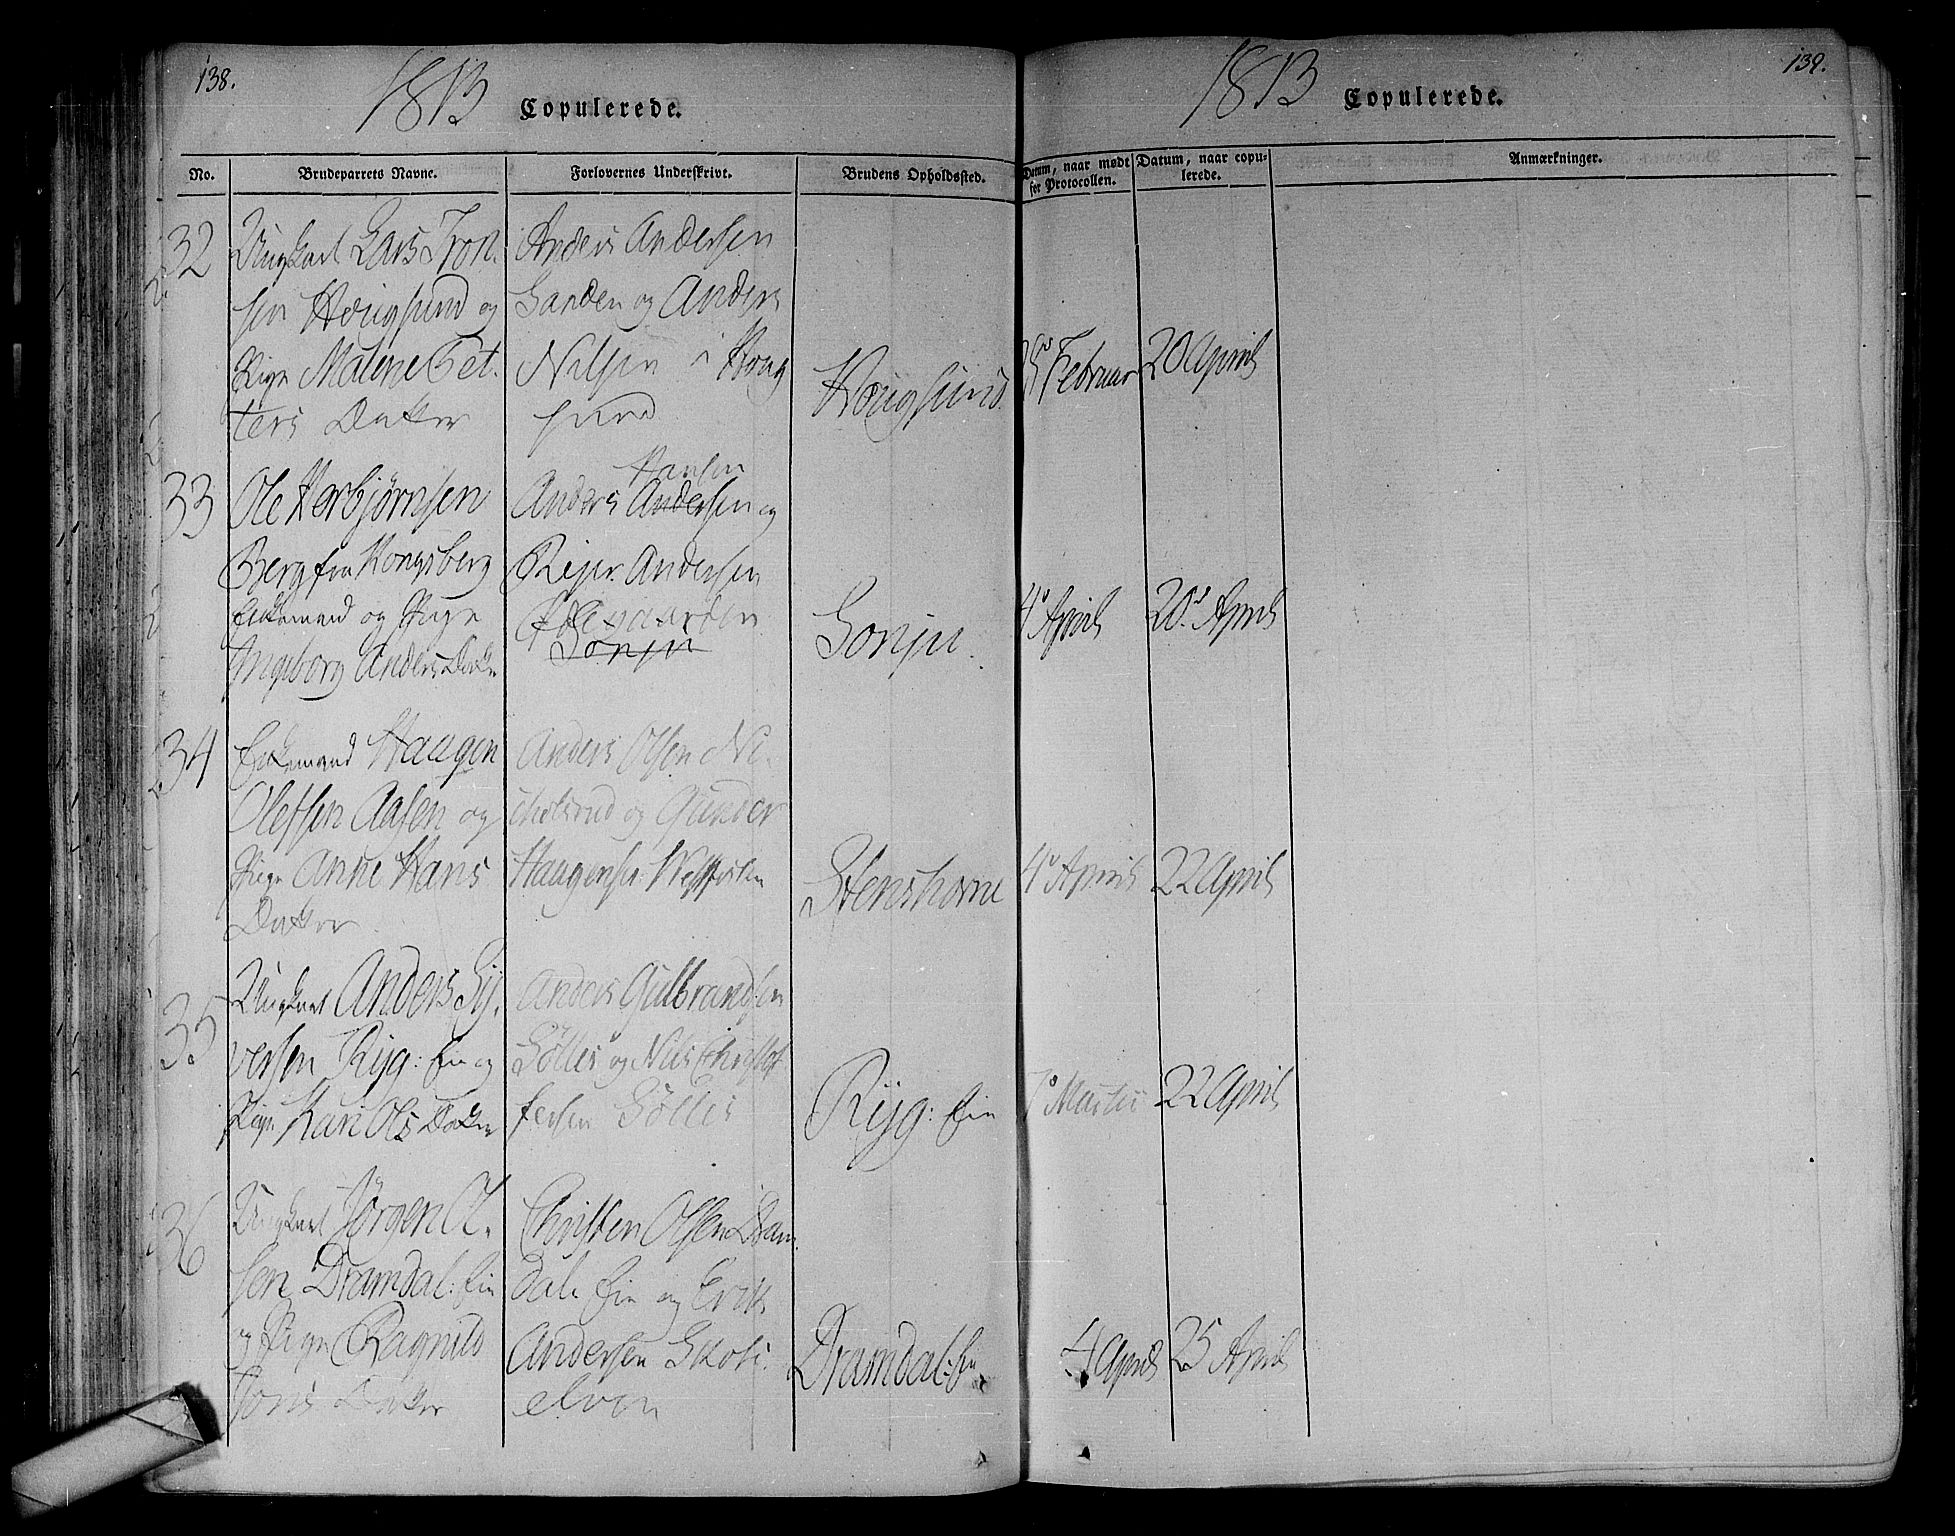 138.
1813
Copulerede.
No.
Brudeparrets Navne.
Forlovernes Underskrivt.
Brudens Opholdssted.
1813
Copulerede.
139.
Datum, naar mødt
for Protocollen.
Datum, naar copu-
lerede.
Anmærkninger.
32
Ungkarl Lars Iron-
sen Hougsund og
Pige Malene Pet-
ters Datter
Anders Andersen
Sanden og Anders
Nilsen i Houg
sund
Hougsund
Februar
20 April
33
Ole Herbjørnsen
Berg fra Kongsberg
Enkemand og Pige
Ingeborg Anders Datter
Hansen
Anders Andersen og
Andersen
Sonju
Sonju
4' April
20' April
34
Enkemand Haagen
Olessen Aasen og
Pige Anne Hans
Datter
Anders Olsen Ni-
og Gunder
Haagensen
Stenshorne
4' April
22 April
35
Ungkarl Anders Sy-
versen Ryg: Eie og
Pige Kari Ols Datter
Anders Gulbrandsen
Sølles og Nils Christof
fersen Sølles
Ryg: Eie
7' Martii
22 April
36
Ungkarl Jørgen Ol-
sen Dramdal: Eie
og Pige Ragnild
Joris Datter
Christen Olsen Dram-
dals Eie og Erik
Andersen Skots-
elven
Dramdal: Eie
4 April
25 April